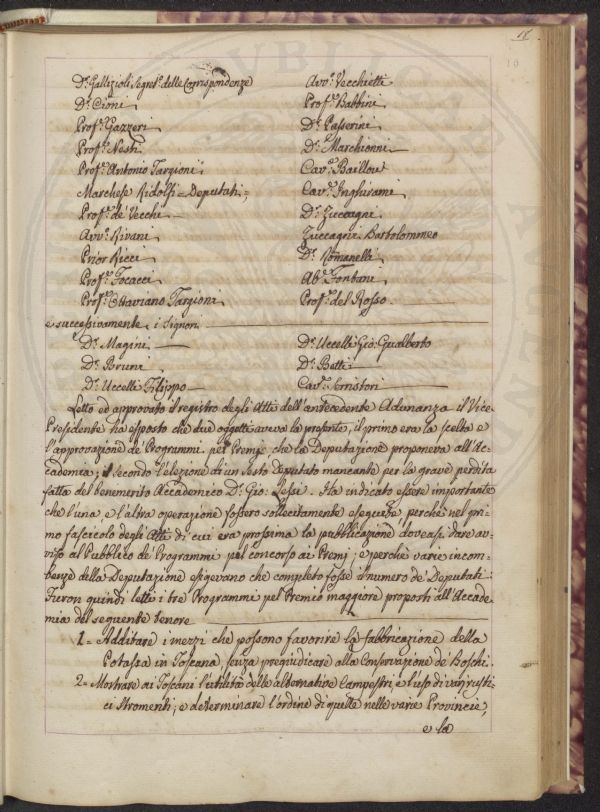 18
10
D.r Gallizioli Segret.o delle Corrispondenze
Avv.o Vecchietti
D.r Cioni
Prof.e Babbini
Prof.e Gazzeri
D.r Passerini
Prof.e Nesti
D.r Marchionni
Prof.e Antonio Targioni
Cav.e Baillou
Marchese Ridolfi = Deputati;
Cav.e Inghirami
Prof.e de' Vecchi
D.r Zuccagni
Avv.o Rivani
Zuccagni Bartolommeo
Prior Ricci
D.r Romanelli
Prof.e Focacci
Ab.e Fontani
Prof.e Ottaviano Targioni
Prof.e del Rosso
e successivamente i Signori
D.r Magini
D.r Uccelli Gio: Gualberto
D.r Bruni
D.r Betti
D.r Uccelli Filippo
Cav.e Cristori
Letto ed approvato il registro degli Atti dell'antecedente Adunanza il Vice
Presidente ha esposto che due oggetti aveva la presente, il primo era la scelta e
l'approvazione de' Programmi pei Premj che la Deputazione proponeva all'Ac=
cademia; il secondo l'elezione di un Sesto Deputato mancante per la grave perdita
fatta del benemerito Accademico D.r Gio: Lessi. Ha indicato essere importante
che l'una e l'altra operazione fossero sollecitamente eseguite, perchè nel pri=
mo fascicolo degli Atti di cui era prossima la pubblicazione doveasi dare av=
viso al Pubblico de' Programmi pel concorso ai Premj; e perchè varie incom=
benze della Deputazione esigevano che completo fosse il numero de' Deputati.
Furon quindi letti i tre Programmi pel Premio maggiore proposti all'Accade=
mia del seguente tenore
1= Additare i mezzi che possono favorire la fabbricazione della
Potassa in Toscana, senza pregiudicare alla Conservazione de' Boschi.
2= Mostrare ai Toscani l'utilità delle alternative Campestri, e l'uso di varj rusti=
ci stromenti; e determinare l'ordine di quelle nelle varie Provincie,
e la